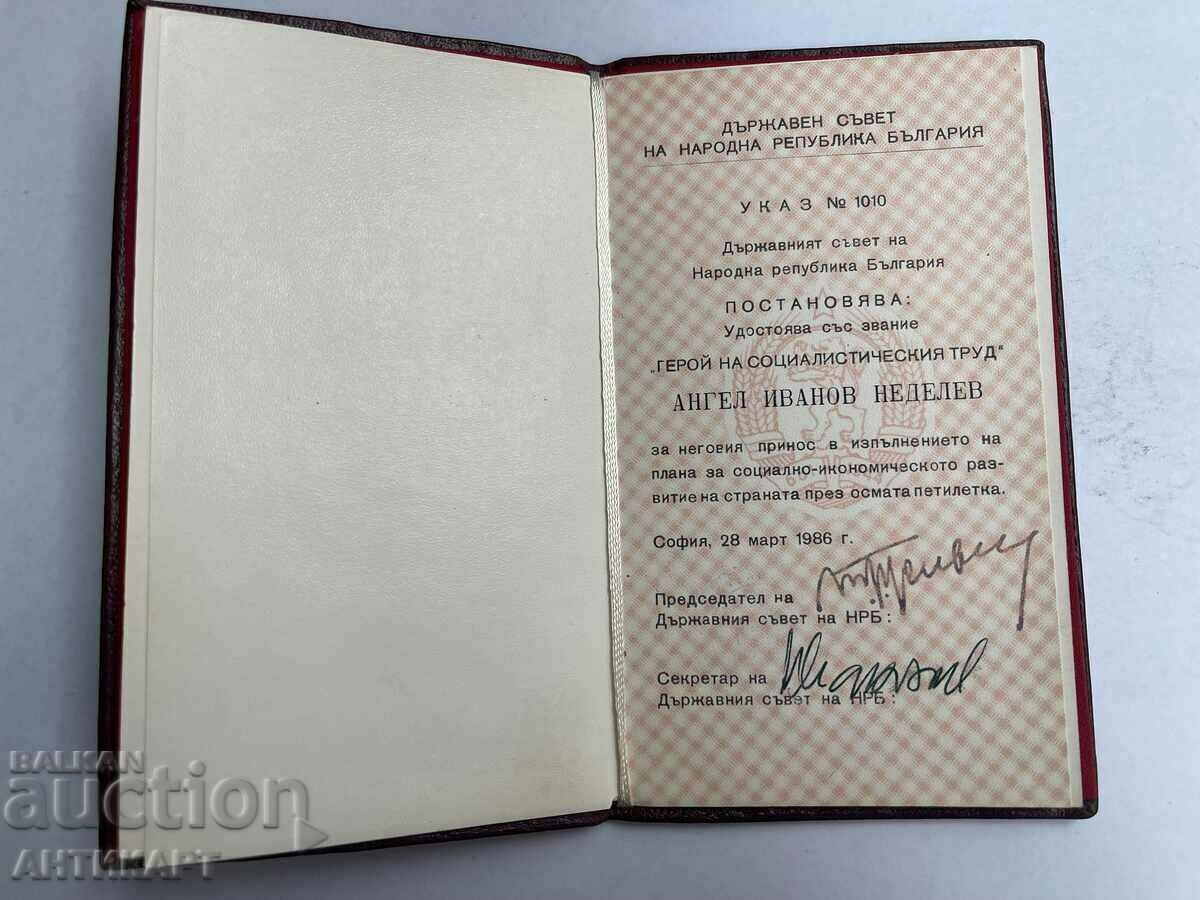 ДЪРЖАВЕН СЪВЕТ
НА НАРОДНА РЕПУБЛИКА БЪЛГАРИЯ
УКАЗ № 1010
Държавният съвет на
Народна република България
ПОСТАНОВЯВА:
Удостоява със звание
„ГЕРОЙ НА СОЦИАЛИСТИЧЕСКИЯ ТРУД"
АНГЕЛ ИВАНОВ НЕДЕЛЕВ
за неговия принос в изпълнението на
плана за социално-икономическото раз-
витие на страната през осмата петилетка.
София, 28 март 1986 г.
Председател на
Държавния съвет на НРБ:
Секретар на
Държавния съвет на НРБ:
BALKAN
auction
АНТИКАРТ